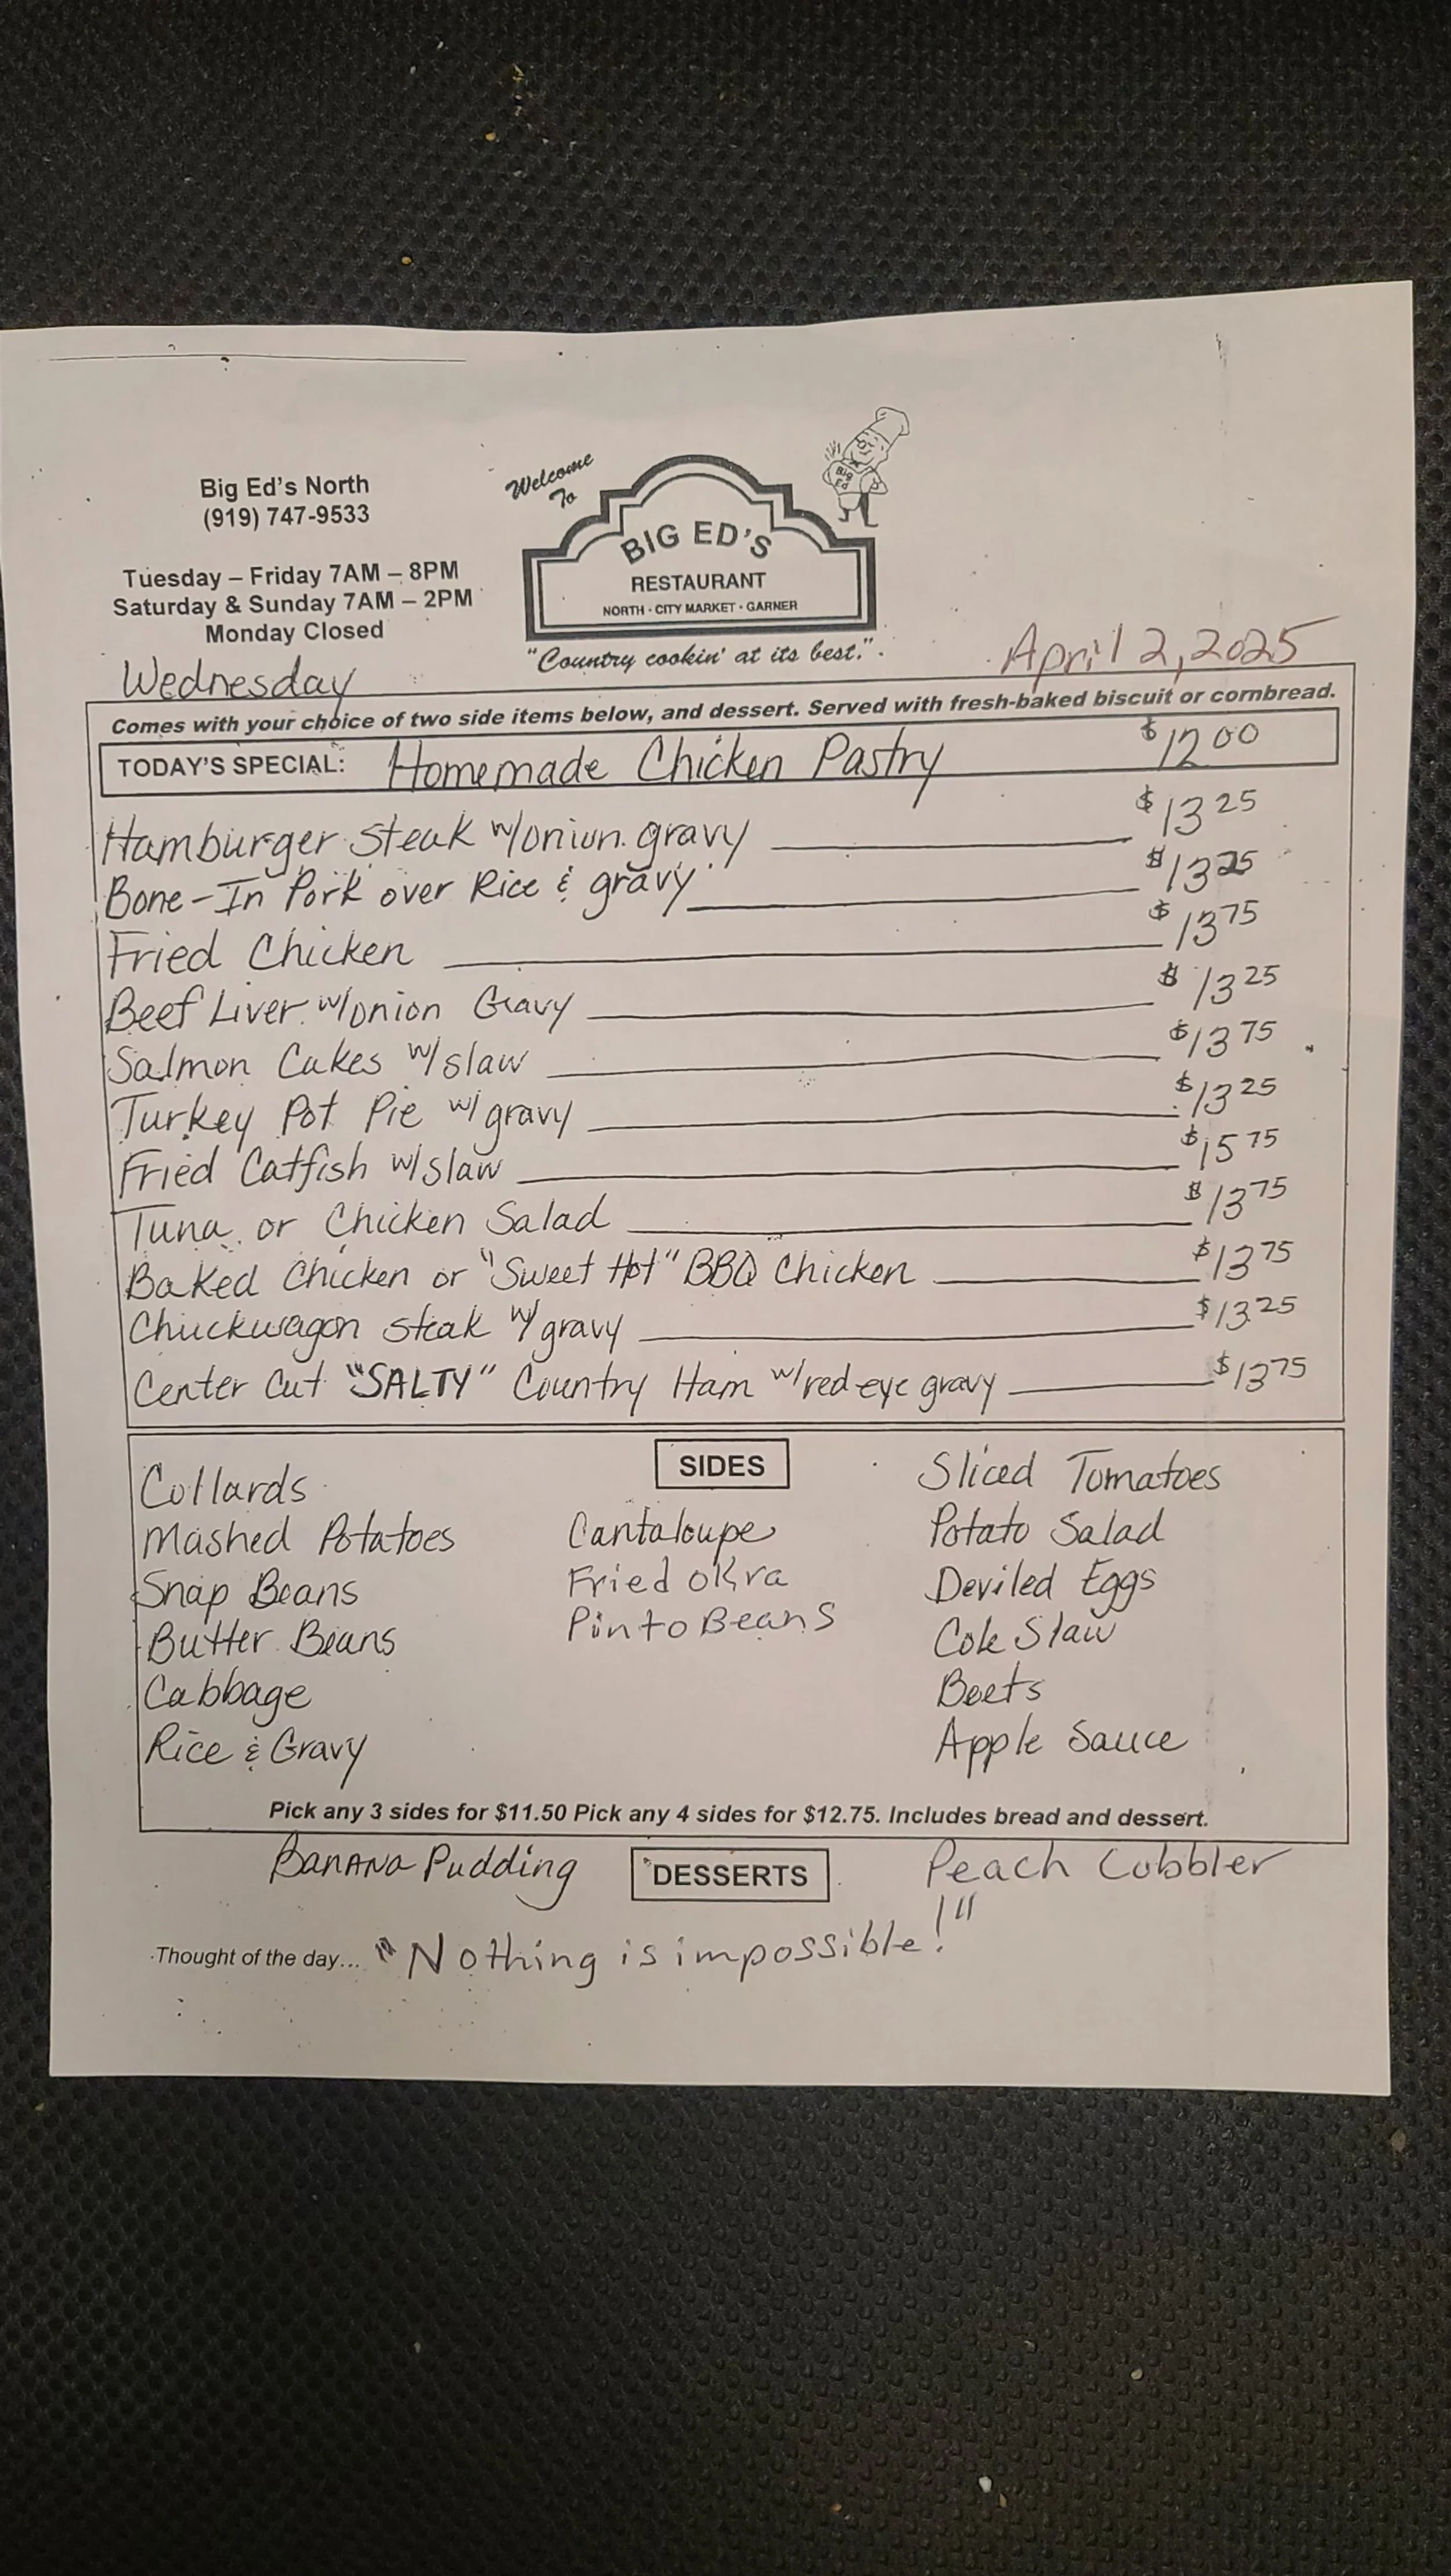 Big Ed's North
(919) 747-9533
Tuesday – Friday 7AM – 8PM
Saturday & Sunday 7AM – 2PM
Monday Closed
Welcome
To
BIG ED'S
RESTAURANT
NORTH · CITY MARKET · GARNER
"Country cookin' at its best."
Big
Ed
Wednesday
April 2, 2025
Comes with your choice of two side items below, and dessert. Served with fresh-baked biscuit or cornbread.
TODAY'S SPECIAL: Homemade Chicken Pastry $12 00
Hamburger Steak w/onion gravy $13 25
Bone-In Pork over Rice & gravy $13 25
Fried Chicken $13 75
Beef Liver w/onion Gravy $13 25
Salmon Cakes w/slaw $13 75
Turkey Pot Pie w/gravy $13 25
Fried Catfish w/slaw $15 75
Tuna or Chicken Salad $13 75
Baked Chicken or "Sweet Hot" BBQ Chicken $13 75
Chuckwagon steak w/gravy $13.25
Center Cut "SALTY" Country Ham w/red eye gravy $13 75
SIDES
Collards
Mashed Potatoes
Snap Beans
Butter Beans
Cabbage
Rice & Gravy
Cantaloupe
Fried okra
Pinto Beans
Sliced Tomatoes
Potato Salad
Deviled Eggs
Cole Slaw
Beets
Apple Sauce
Pick any 3 sides for $11.50 Pick any 4 sides for $12.75. Includes bread and dessert.
Banana Pudding DESSERTS Peach Cobbler
Thought of the day... "Nothing is impossible!"